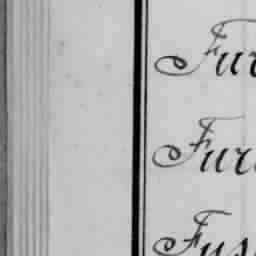 Fur
Fur
Fus